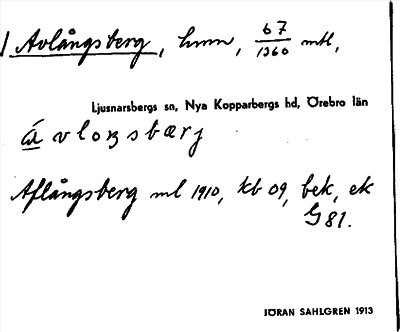 Avlångsberg, hmn, 67/1360 mtl,
Ljusnarsbergs sn, Nya Kopparbergs hd, Örebro län
Aflångsberg ml 1910, kb 09, bek, ek
G 81.
JÖRAN SAHLGREN 1913